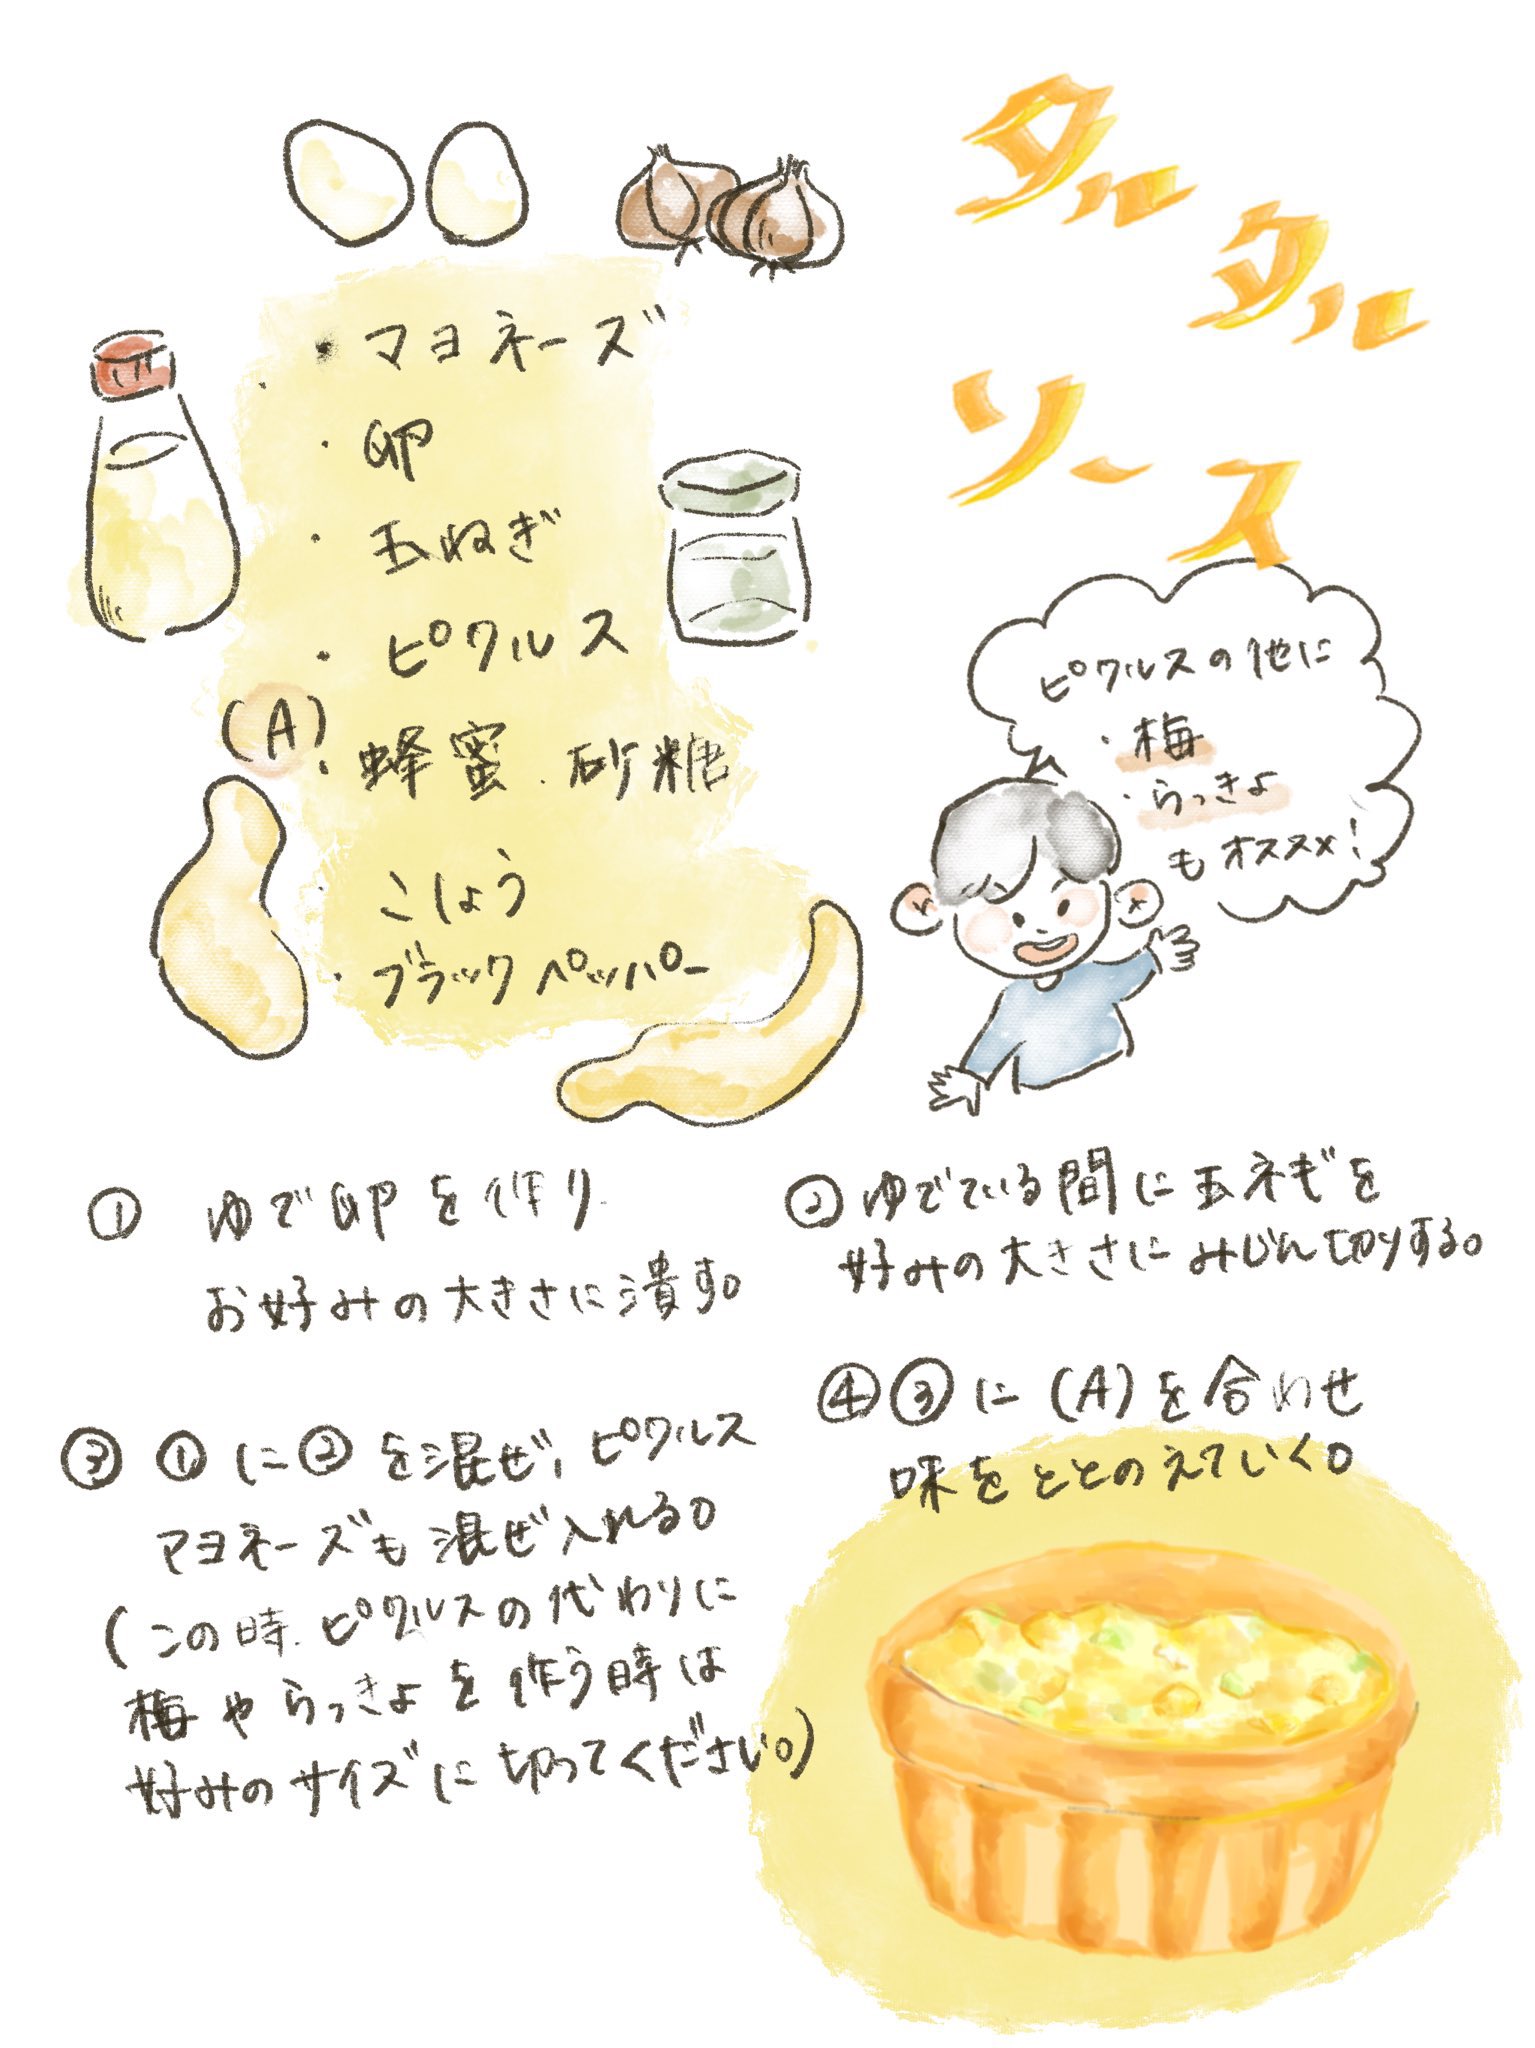 タルタル
ソース
・マヨネーズ
・卵
・玉ねぎ
・ピクルス
(A)
・蜂蜜、砂糖
・こしょう
・ブラックペッパー
ピクルスの他に
・梅
・らっきょ
もオススメ!
① ゆで卵を作り、
お好みの大きさに潰す。
②ゆでている間に玉ネギを
好みの大きさにみじん切りする。
③ ①に②を混ぜ、ピクルス
マヨネーズも混ぜ入れる。
(この時、ピクルスの代わりに
梅やらっきょを使う時は
好みのサイズに切ってください。)
④③に(A)を合わせ
味をととのえていく。